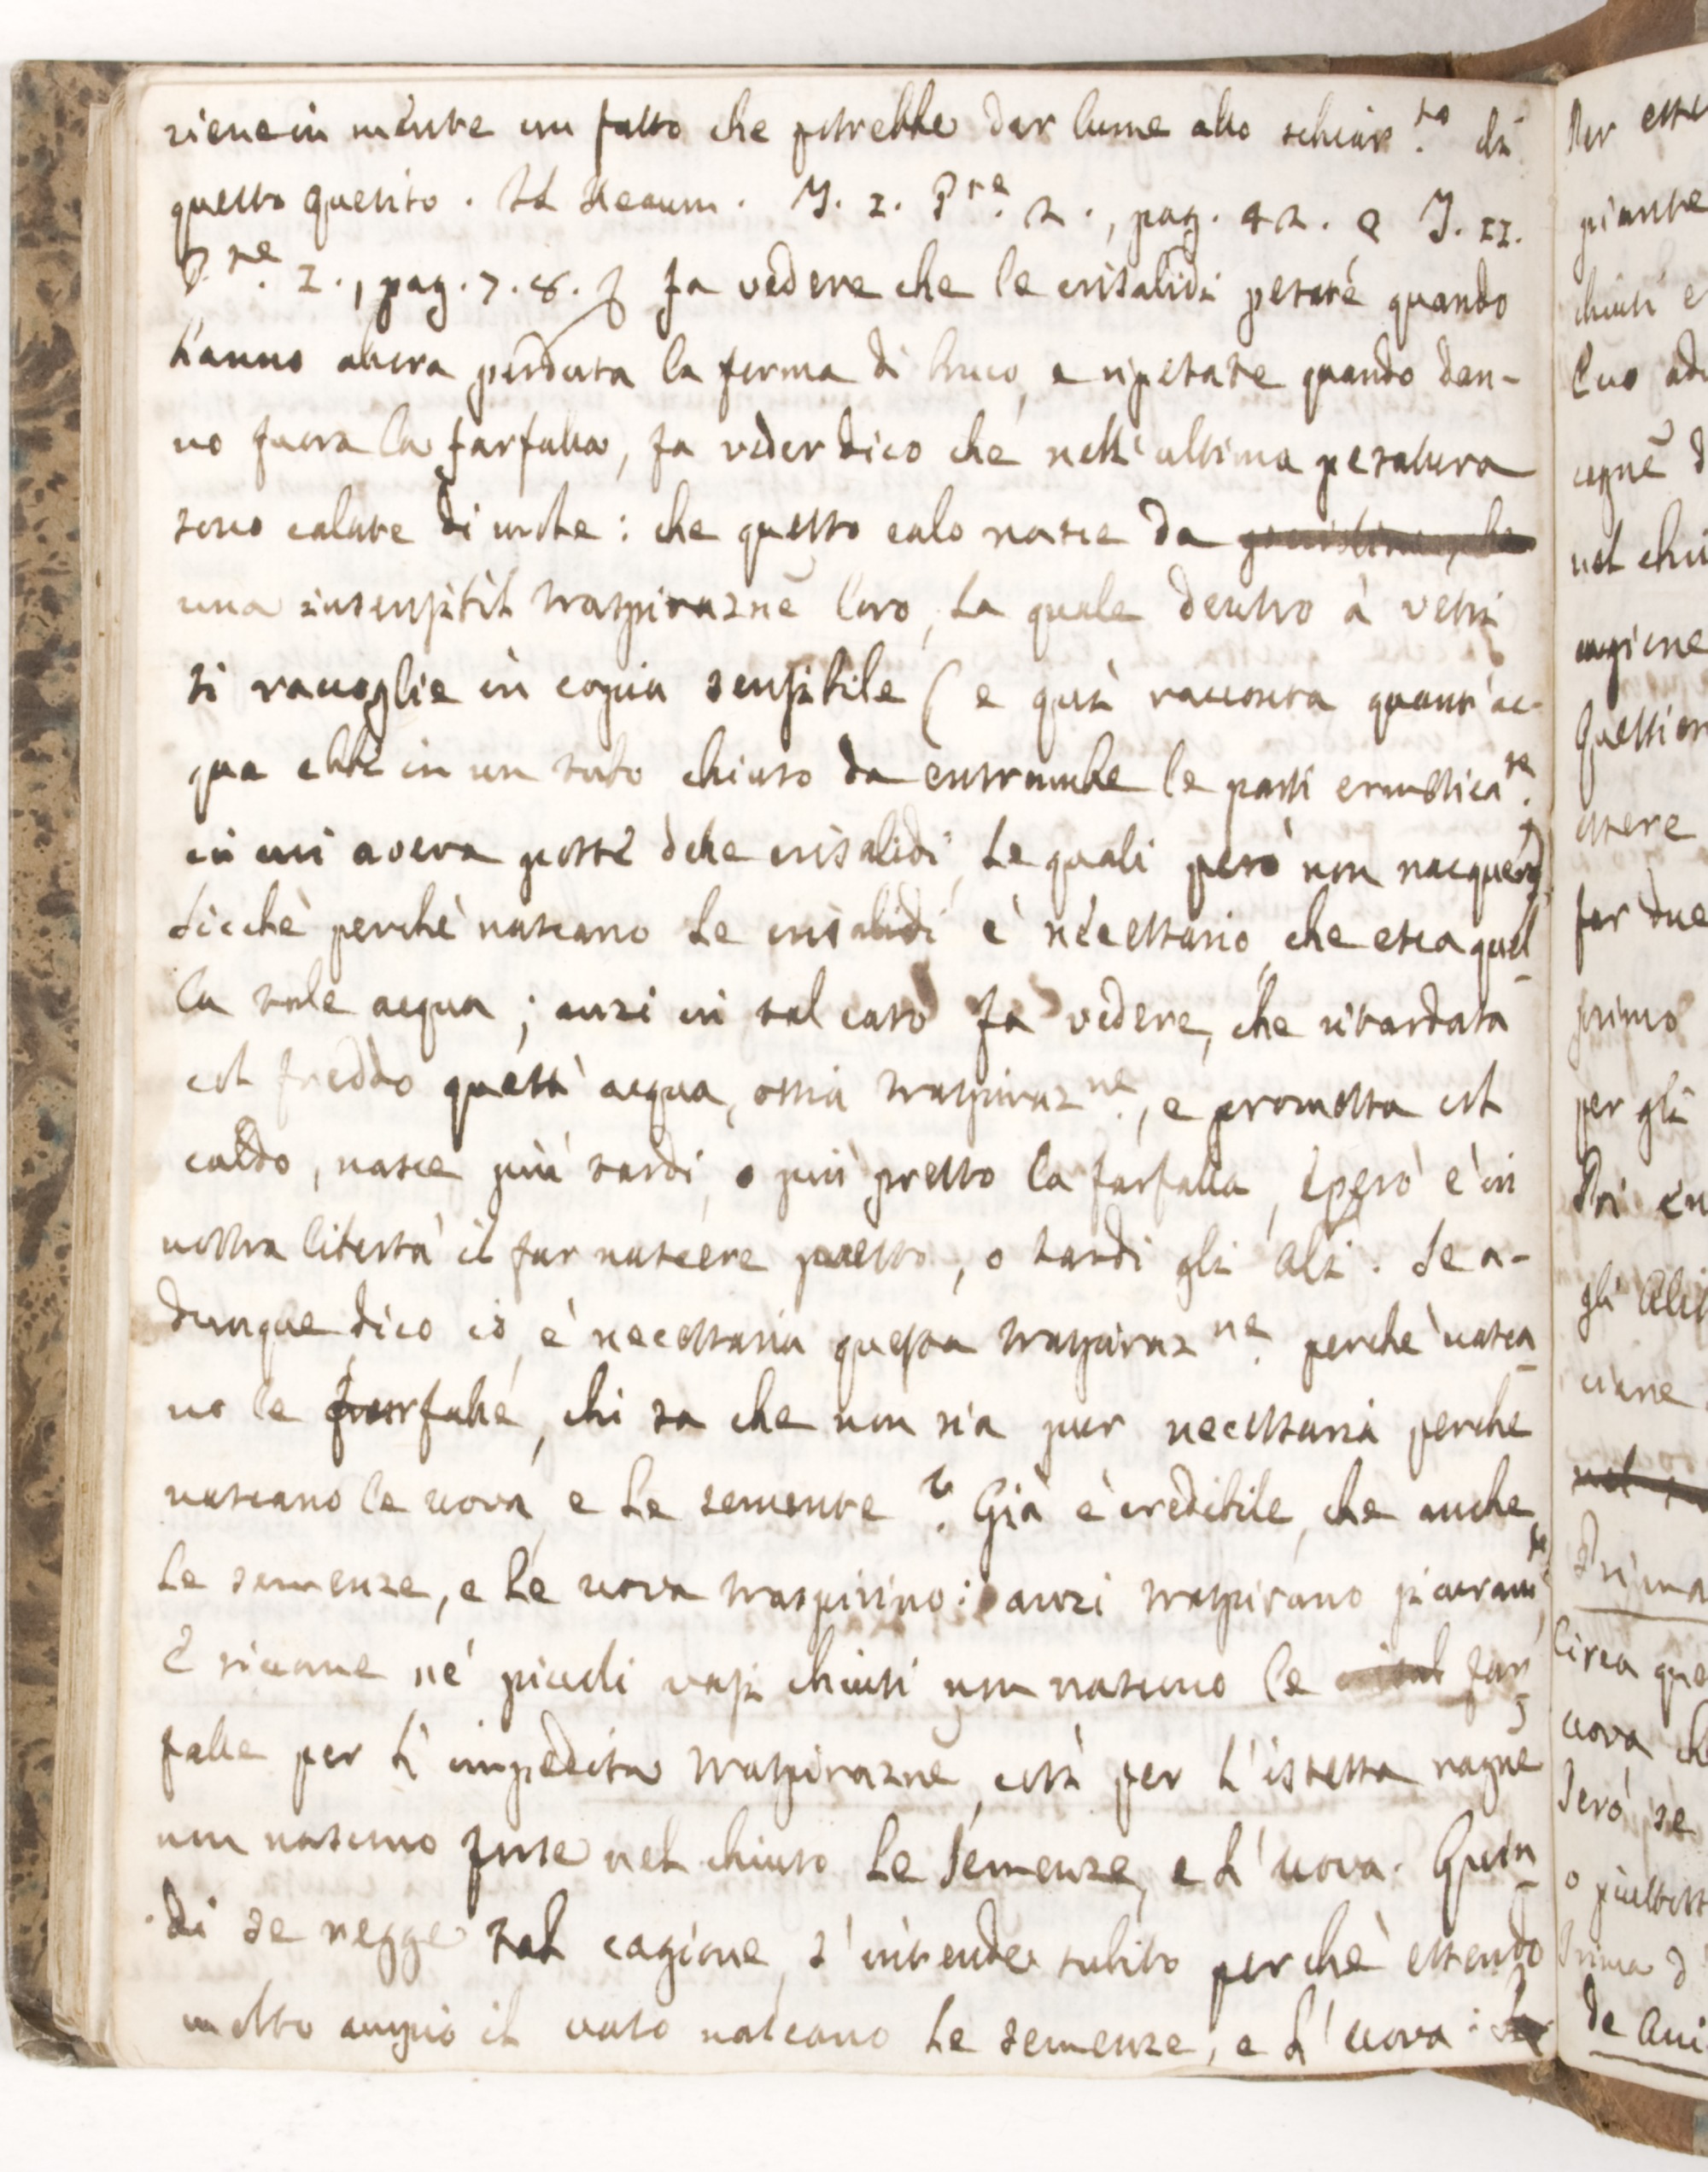 viene in mente un fatto che potrebbe dar lume allo schiar.to di
questo quesito. Il Reaum. T. I. P.re 2., pag. 42. e T. II.
P.re I., pag. 7. 8. fa vedere che le crisalidi pesate quando
hanno allora perduta la forma di bruco, e ripesate quando dan-
no fuora la farfalla, fa veder dico che nell'ultima pesatura
sono calate di molto: che questo calo nasce da
una insensibil traspirazne loro, la quale dentro à vetri
si raccoglie in copia sensibile (e quì racconta quant'ac-
qua ebbe in un tubo chiuso da entrambe le parti ermetica.te
in cui aveva poste dlle crisalidi, le quali però non nacquero)
sicchè perchè nascano le crisalidi è necessario, che esca quel-
la tale acqua; anzi in tal caso fa vedere, che ritardata
col freddo quest'acqua, ossia traspiraz.ne, e promossa col
caldo, nasce più tardi, o più presto la farfalla, e però è in
nostra libertà il far nascere presto, o tardi gli Alj. Se a-
dunque, dico io, è necessaria questa traspiraz.ne perchè nasca-
no le farfalle, chi sa che non sia pur necessaria perchè
nascano le uova, e le semente? Già è credibile, che anche
le semenze, e le uova traspirino: anzi traspirano sicuram.te
E siccome nè piccoli vasi chiusi non nascono le far-
falle per l'impedita traspirazne, così per l'istessa ragne
non nascono forse nel chiuso le semenze, e l'uova. Quin-
di se regge tal cagione, s'intende subito perchè essendo
molto ampio il vaso nascano le semenze, e l'uova:
Per esse
piante
chiusi e
cagne d
nel chiu
cagione
Question
essere
far due
primo
per gli
Poi
gli
Prima
Circa que
uova, ch
Però se
o piuttost
Prima d
de Ani